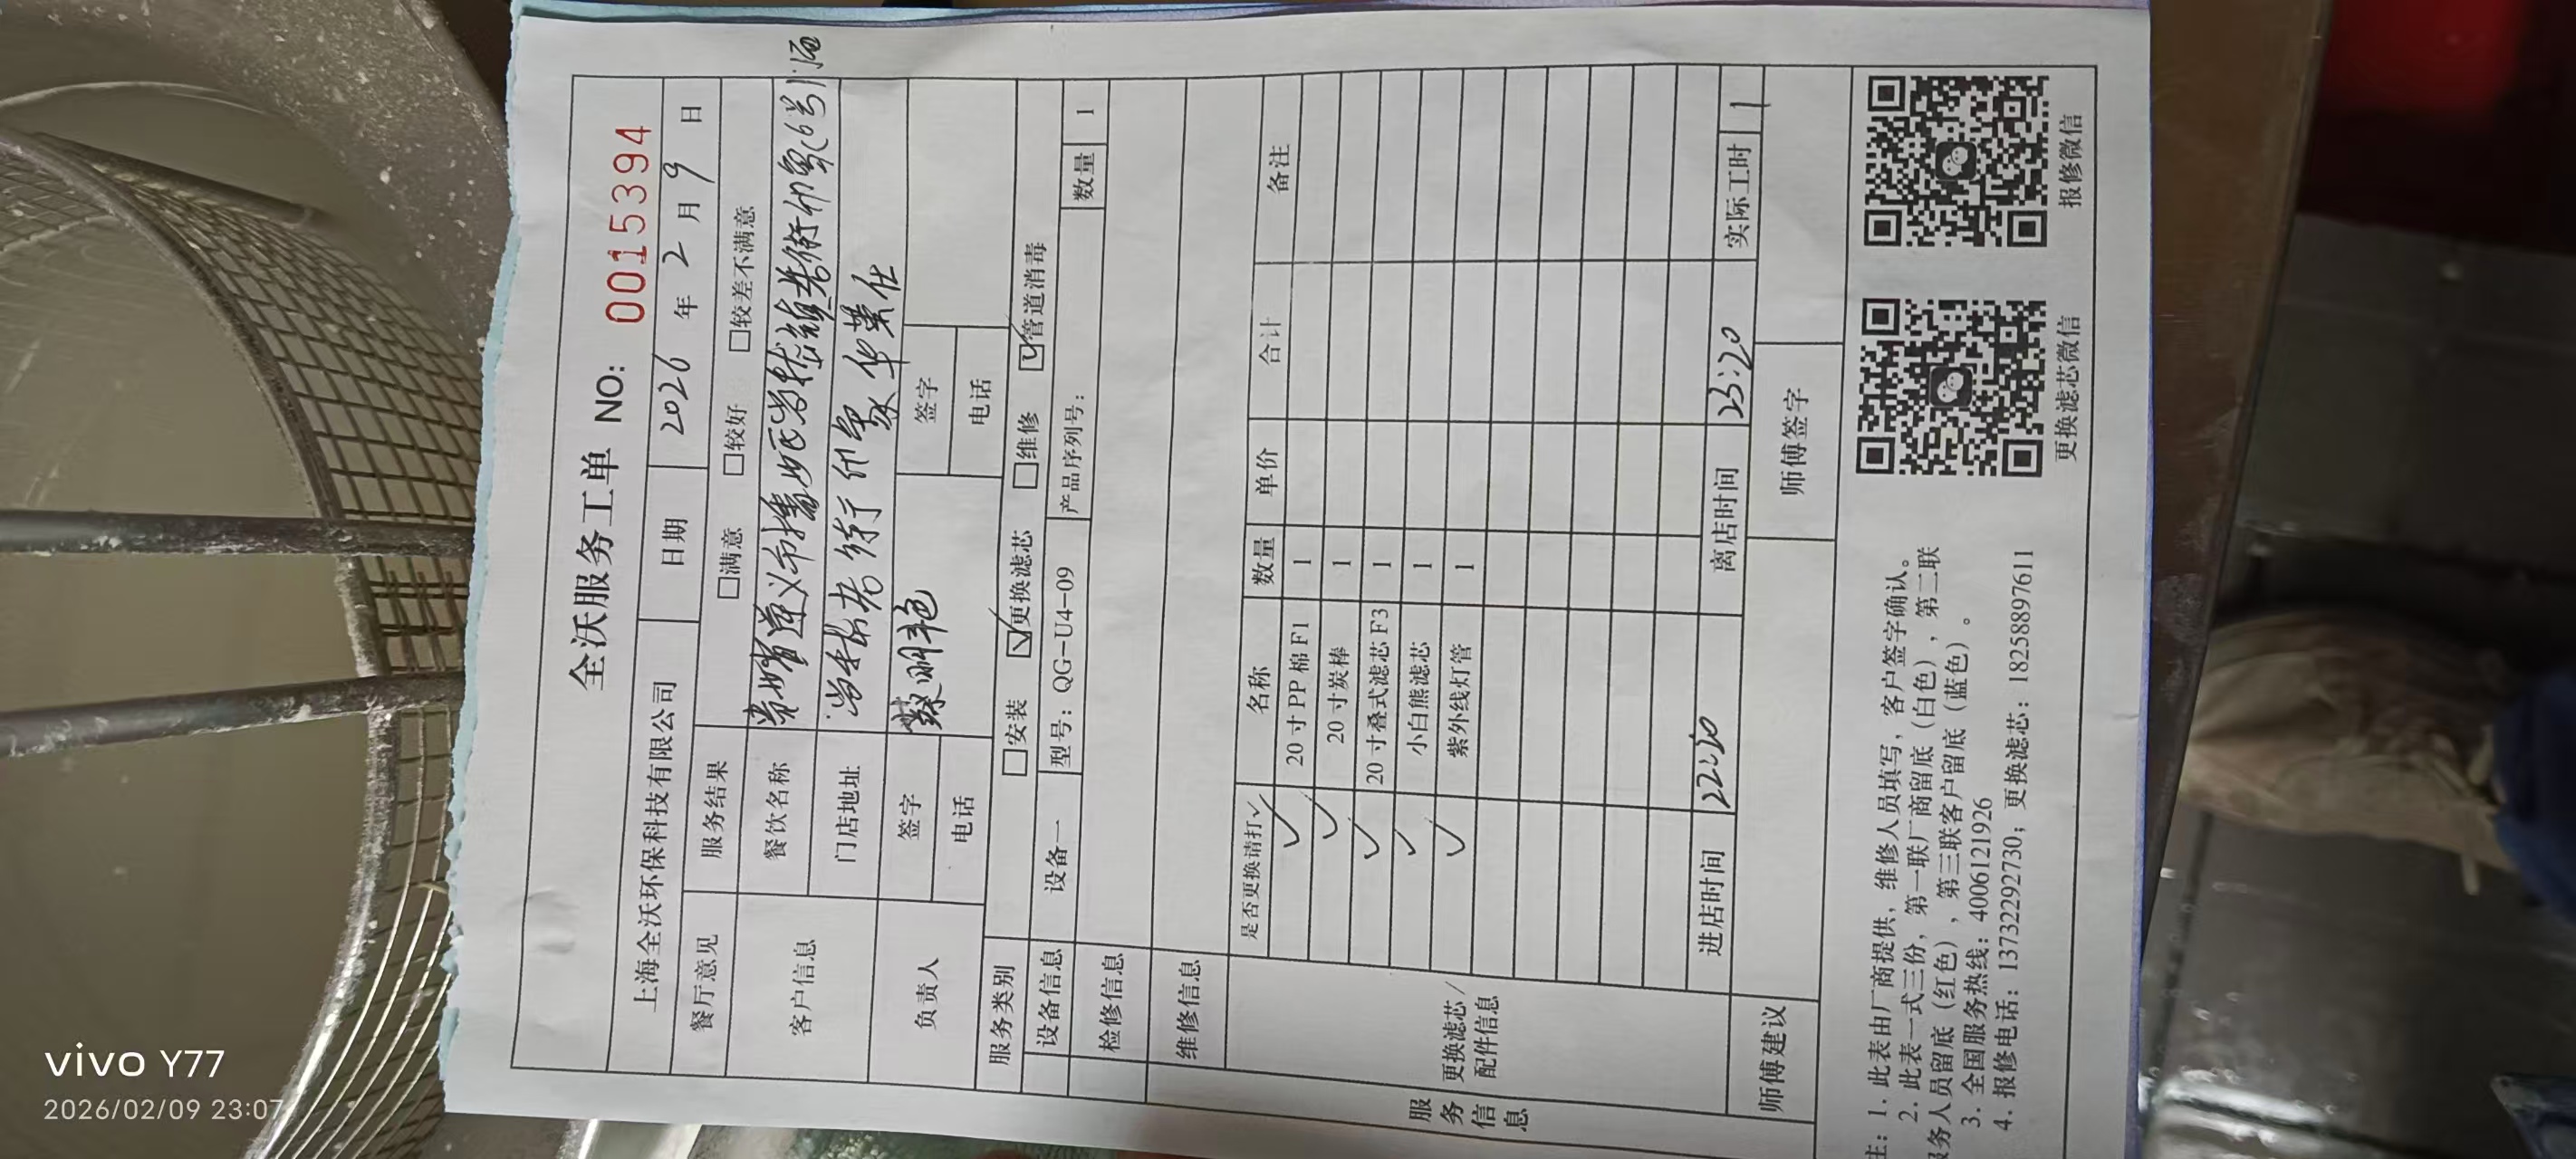 全沃服务工单 NO: 0015394
上海全沃环保科技有限公司 日期 2026 年 2 月 9 日
餐厅意见 服务结果 □满意 □较好 □较差不满意
客户信息 餐饮名称 贵州省遵义市播州区
门店地址
负责人 签字 签字
电话 电话
服务类别 □安装 ☑更换滤芯 □维修 ☑管道消毒
设备信息 设备一 型号：QG-U4-09 产品序列号： 数量 1
检修信息
维修信息
服务信息
更换滤芯/配件信息
是否更换请打✓ 名称 数量 单价 合计 备注
✓ 20寸PP棉F1 1
✓ 20寸炭棒 1
✓ 20寸叠式滤芯F3 1
✓ 小白熊滤芯 1
✓ 紫外线灯管 1
进店时间 离店时间 23:20 实际工时 1
师傅建议 师傅签字
注：1. 此表由厂商提供，维修人员填写，客户签字确认。
2. 此表一式三份，第一联厂商留底（白色），第二联
服务人员留底（红色），第三联客户留底（蓝色）。
3. 全国服务热线：4006121926
4. 报修电话：13732292730；更换滤芯：18258897611
更换滤芯微信 报修微信
vivo Y77
2026/02/09 23:07